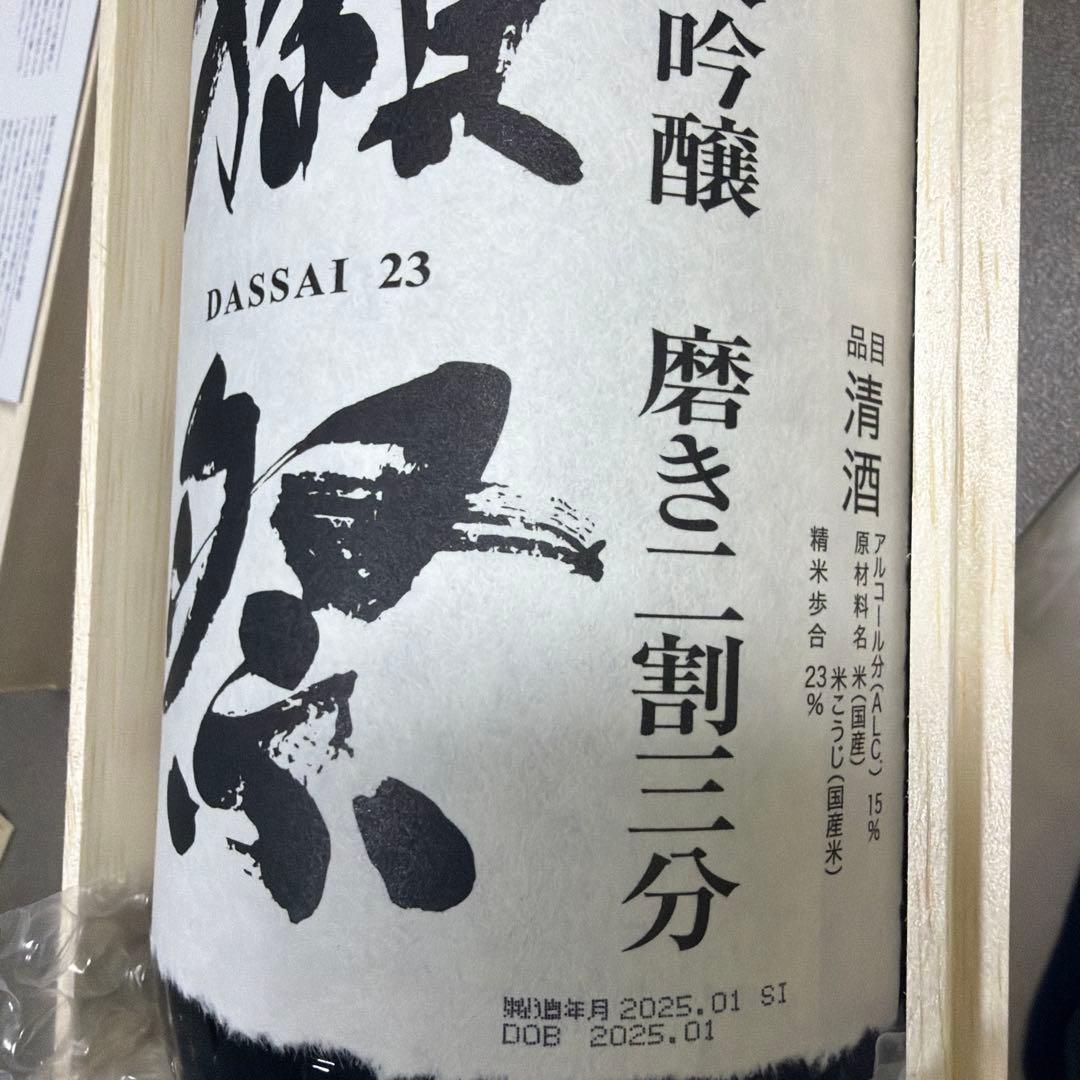 獺祭
DASSAI 23
吟醸 磨き二割三分
品目 清酒
アルコール分(ALC.) 15%
原材料名 米(国産)
米こうじ(国産米)
精米歩合 23%
製造年月 2025.01 SI
DOB 2025.01